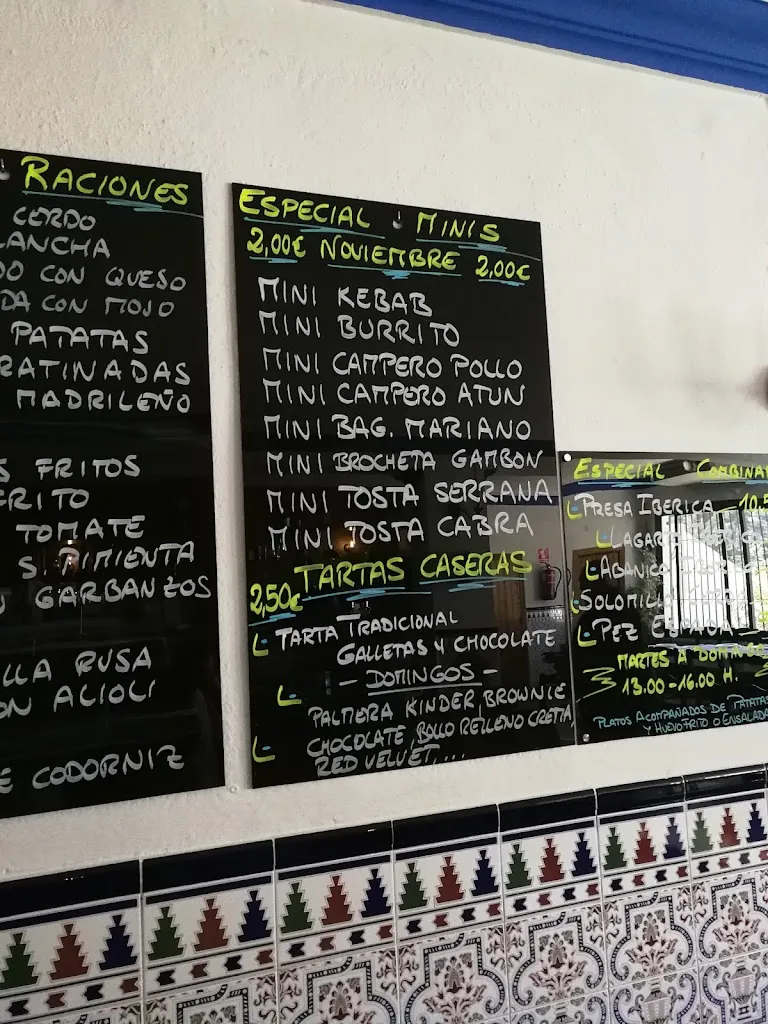 RACIONES
CERDO
LANCHA
DO CON QUESO
DA CON MOJO
PATATAS
RATINADAS
MADRILEÑO
S FRITOS
FRITO
TOMATE
S. PIMIENTA
GARBANZOS
LLA RUSA
ON ALIOLI
E CODORNIZ
ESPECIAL MINIS
2,00€ NOVIEMBRE 2,00€
MINI KEBAB
MINI BURRITO
MINI CAMPERO POLLO
MINI CAMPERO ATUN
MINI BAG. MARIANO
MINI BROCHETA GAMBON
MINI TOSTA SERRANA
MINI TOSTA CABRA
TARTAS CASERAS
2,50€
TARTA TRADICIONAL
GALLETAS Y CHOCOLATE
- DOMINGOS -
PALMERA KINDER, BROWNIE
CHOCOLATE, BOLLO RELLENO CREMA
RED VELVET, ...
ESPECIAL COMBINA
PRESA IBERICA 10,5
LAGAR
ABANICO
SOLOMILL
PEZ ESPADA
MARTES A DOMINGO
13.00-16.00 H.
PLATOS ACOMPAÑADOS DE PATATAS
Y HUEVO FRITO O ENSALADA